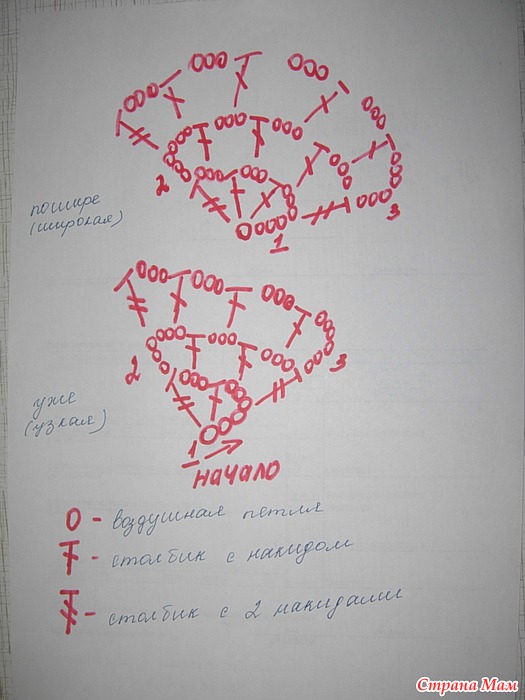 2
пошире
(широкая)
1
3
2
3
уже
(узкая)
1
начало
- воздушная петля
- столбик с накидом
- столбик с 2 накидами
Страна Мам